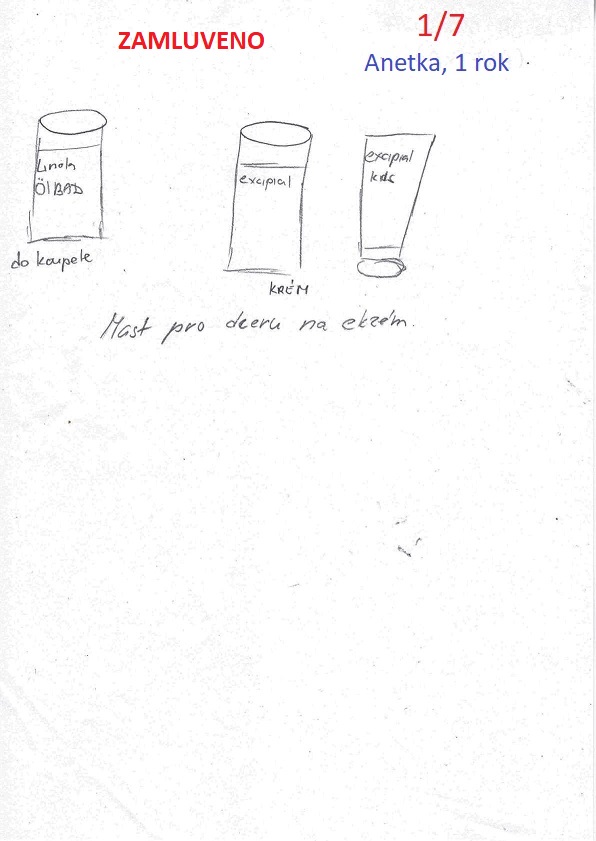 ZAMLUVENO
1/7
Anetka, 1 rok
Linola
ÖlBAD
do koupele
excipial
KRÉM
excipial
kids
Mast pro dceru na ekzém.